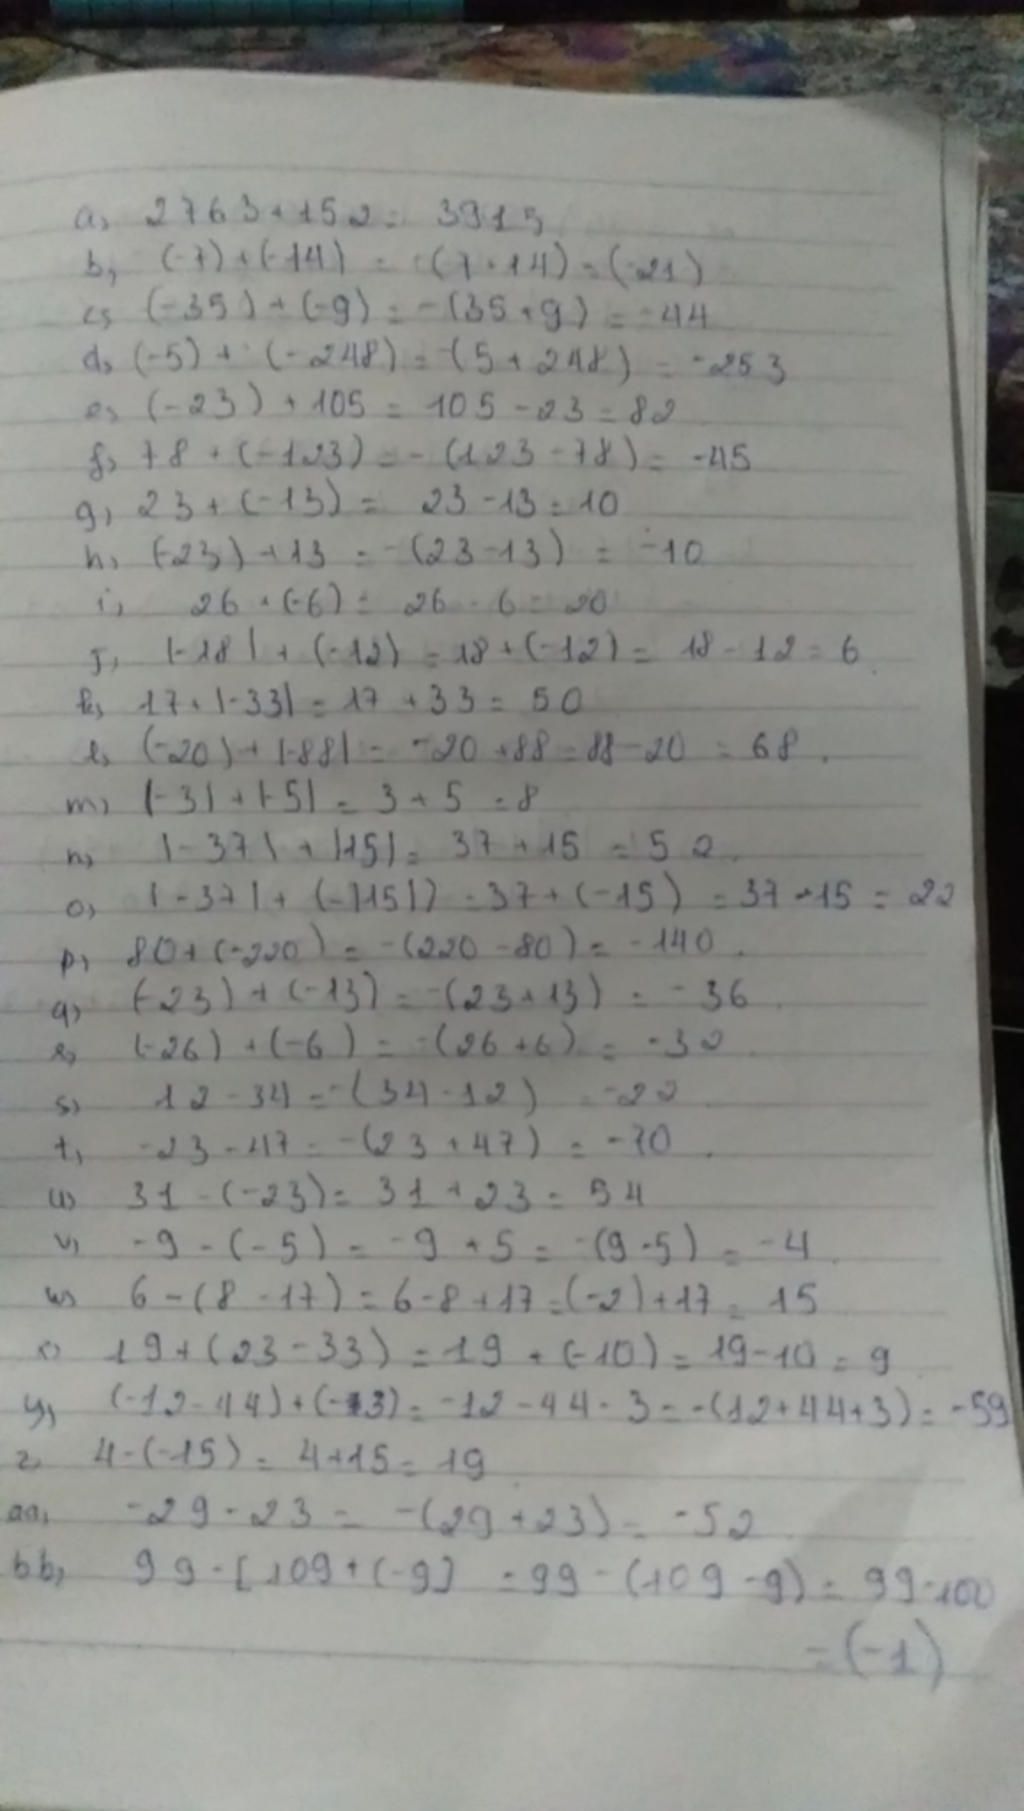 a, 2763 + 152 = 3915
b, (-7) + (-14) = -(7+14) = (-21)
c, (-35) + (-9) = -(35+9) = -44
d, (-5) + (-248) = -(5+248) = -253
e, (-23) + 105 = 105 - 23 = 82
f, 78 + (-123) = -(123-78) = -45
g, 23 + (-13) = 23 - 13 = 10
h, (-23) + 13 = -(23-13) = -10
i, 26 + (-6) = 26 - 6 = 20
j, |-18| + (-12) = 18 + (-12) = 18 - 12 = 6
k, 17 + |-33| = 17 + 33 = 50
l, (-20) + |-88| = -20 + 88 = 88 - 20 = 68.
m, |-3| + |-5| = 3 + 5 = 8
n, |-37| + |15| = 37 + 15 = 52.
o, |-37| + (-|15|) = 37 + (-15) = 37 - 15 = 22
p, 80 + (-220) = -(220-80) = -140.
q, (-23) + (-13) = -(23+13) = -36
r, (-26) + (-6) = -(26+6) = -32
s, 12 - 34 = -(34-12) = -22
t, -23 - 47 = -(23+47) = -70.
u, 31 - (-23) = 31 + 23 = 54
v, -9 - (-5) = -9 + 5 = -(9-5) = -4
w, 6 - (8-17) = 6 - 8 + 17 = (-2) + 17 = 15
x, 19 + (23-33) = 19 + (-10) = 19 - 10 = 9
y, (-12-44) + (-3) = -12 - 44 - 3 = -(12+44+3) = -59
z, 4 - (-15) = 4 + 15 = 19
aa, -29 - 23 = -(29+23) = -52
bb, 99 - [109 + (-9] = 99 - (109-9) = 99 - 100
= (-1)